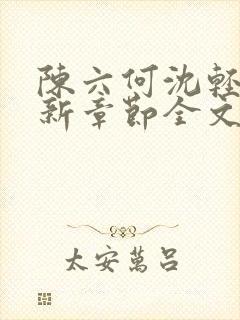 陳六何沈輕
新章節全文
太安萬呂